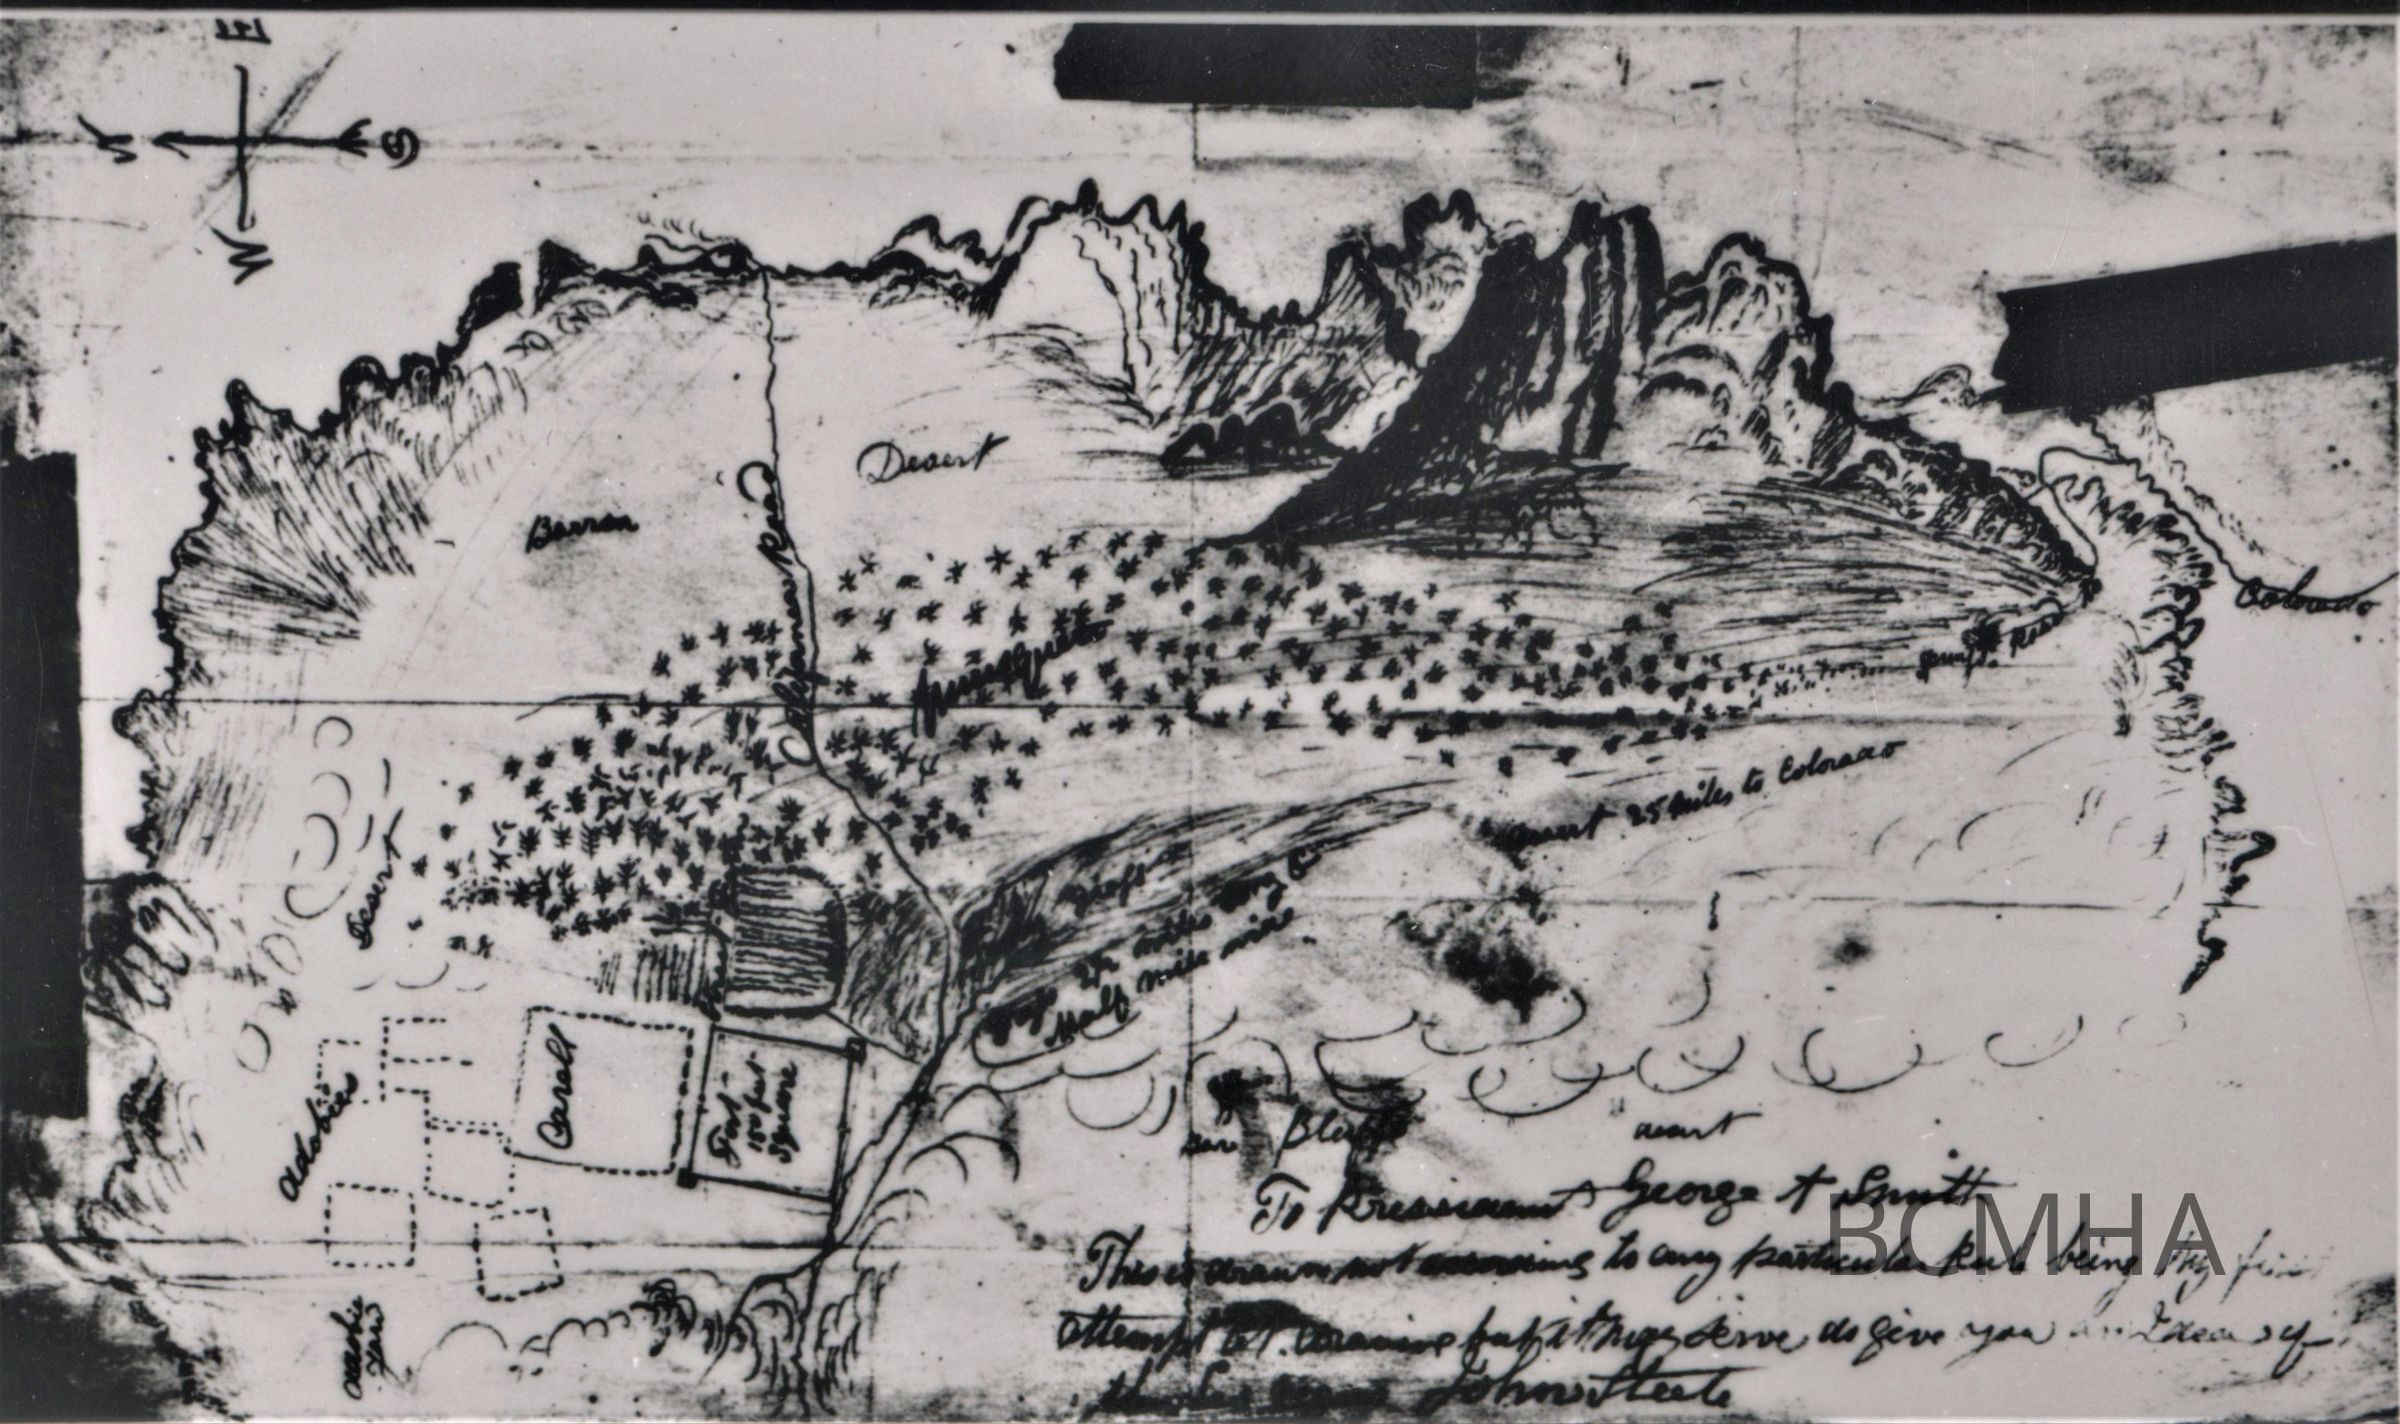 E
N
S
W
Desert
Barren
California Road
Musquite
Colorado
Road
Desert
Desert 25 miles to Colorado
Grass
Grass 2½ miles long by
Half mile wide
Adobies
Caralt
Fort
150 feet
Square
Bluffs
Desert
To President George A Smith
This is drawn not according to any particular Rule being my first
attempt at drawing but it may serve to give you an Idea of
John Steele
Adobie
yard
BCMHA